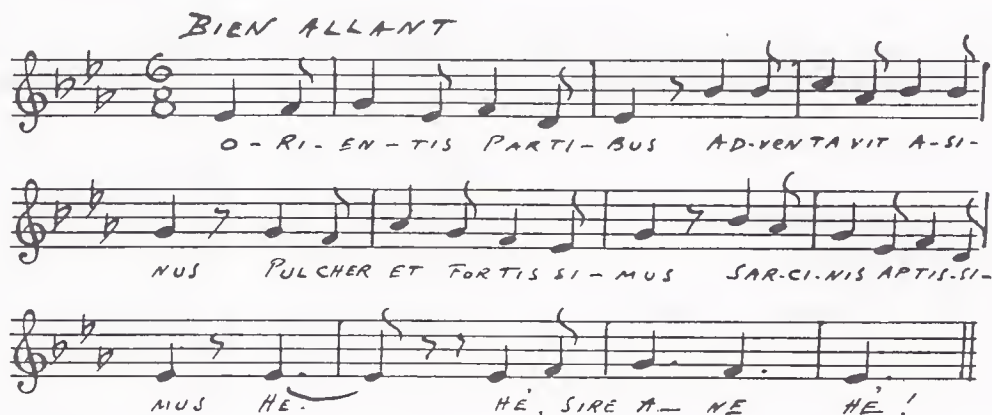 BIEN ALLANT
6
8
O-RI-EN-TIS PARTI-BUS AD-VENTAVIT A-SI-
NUS PULCHER ET FORTISSI-MUS SAR-CI-NIS APTIS-SI-
MUS HE. HÉ, SIRE A-NE HÉ!